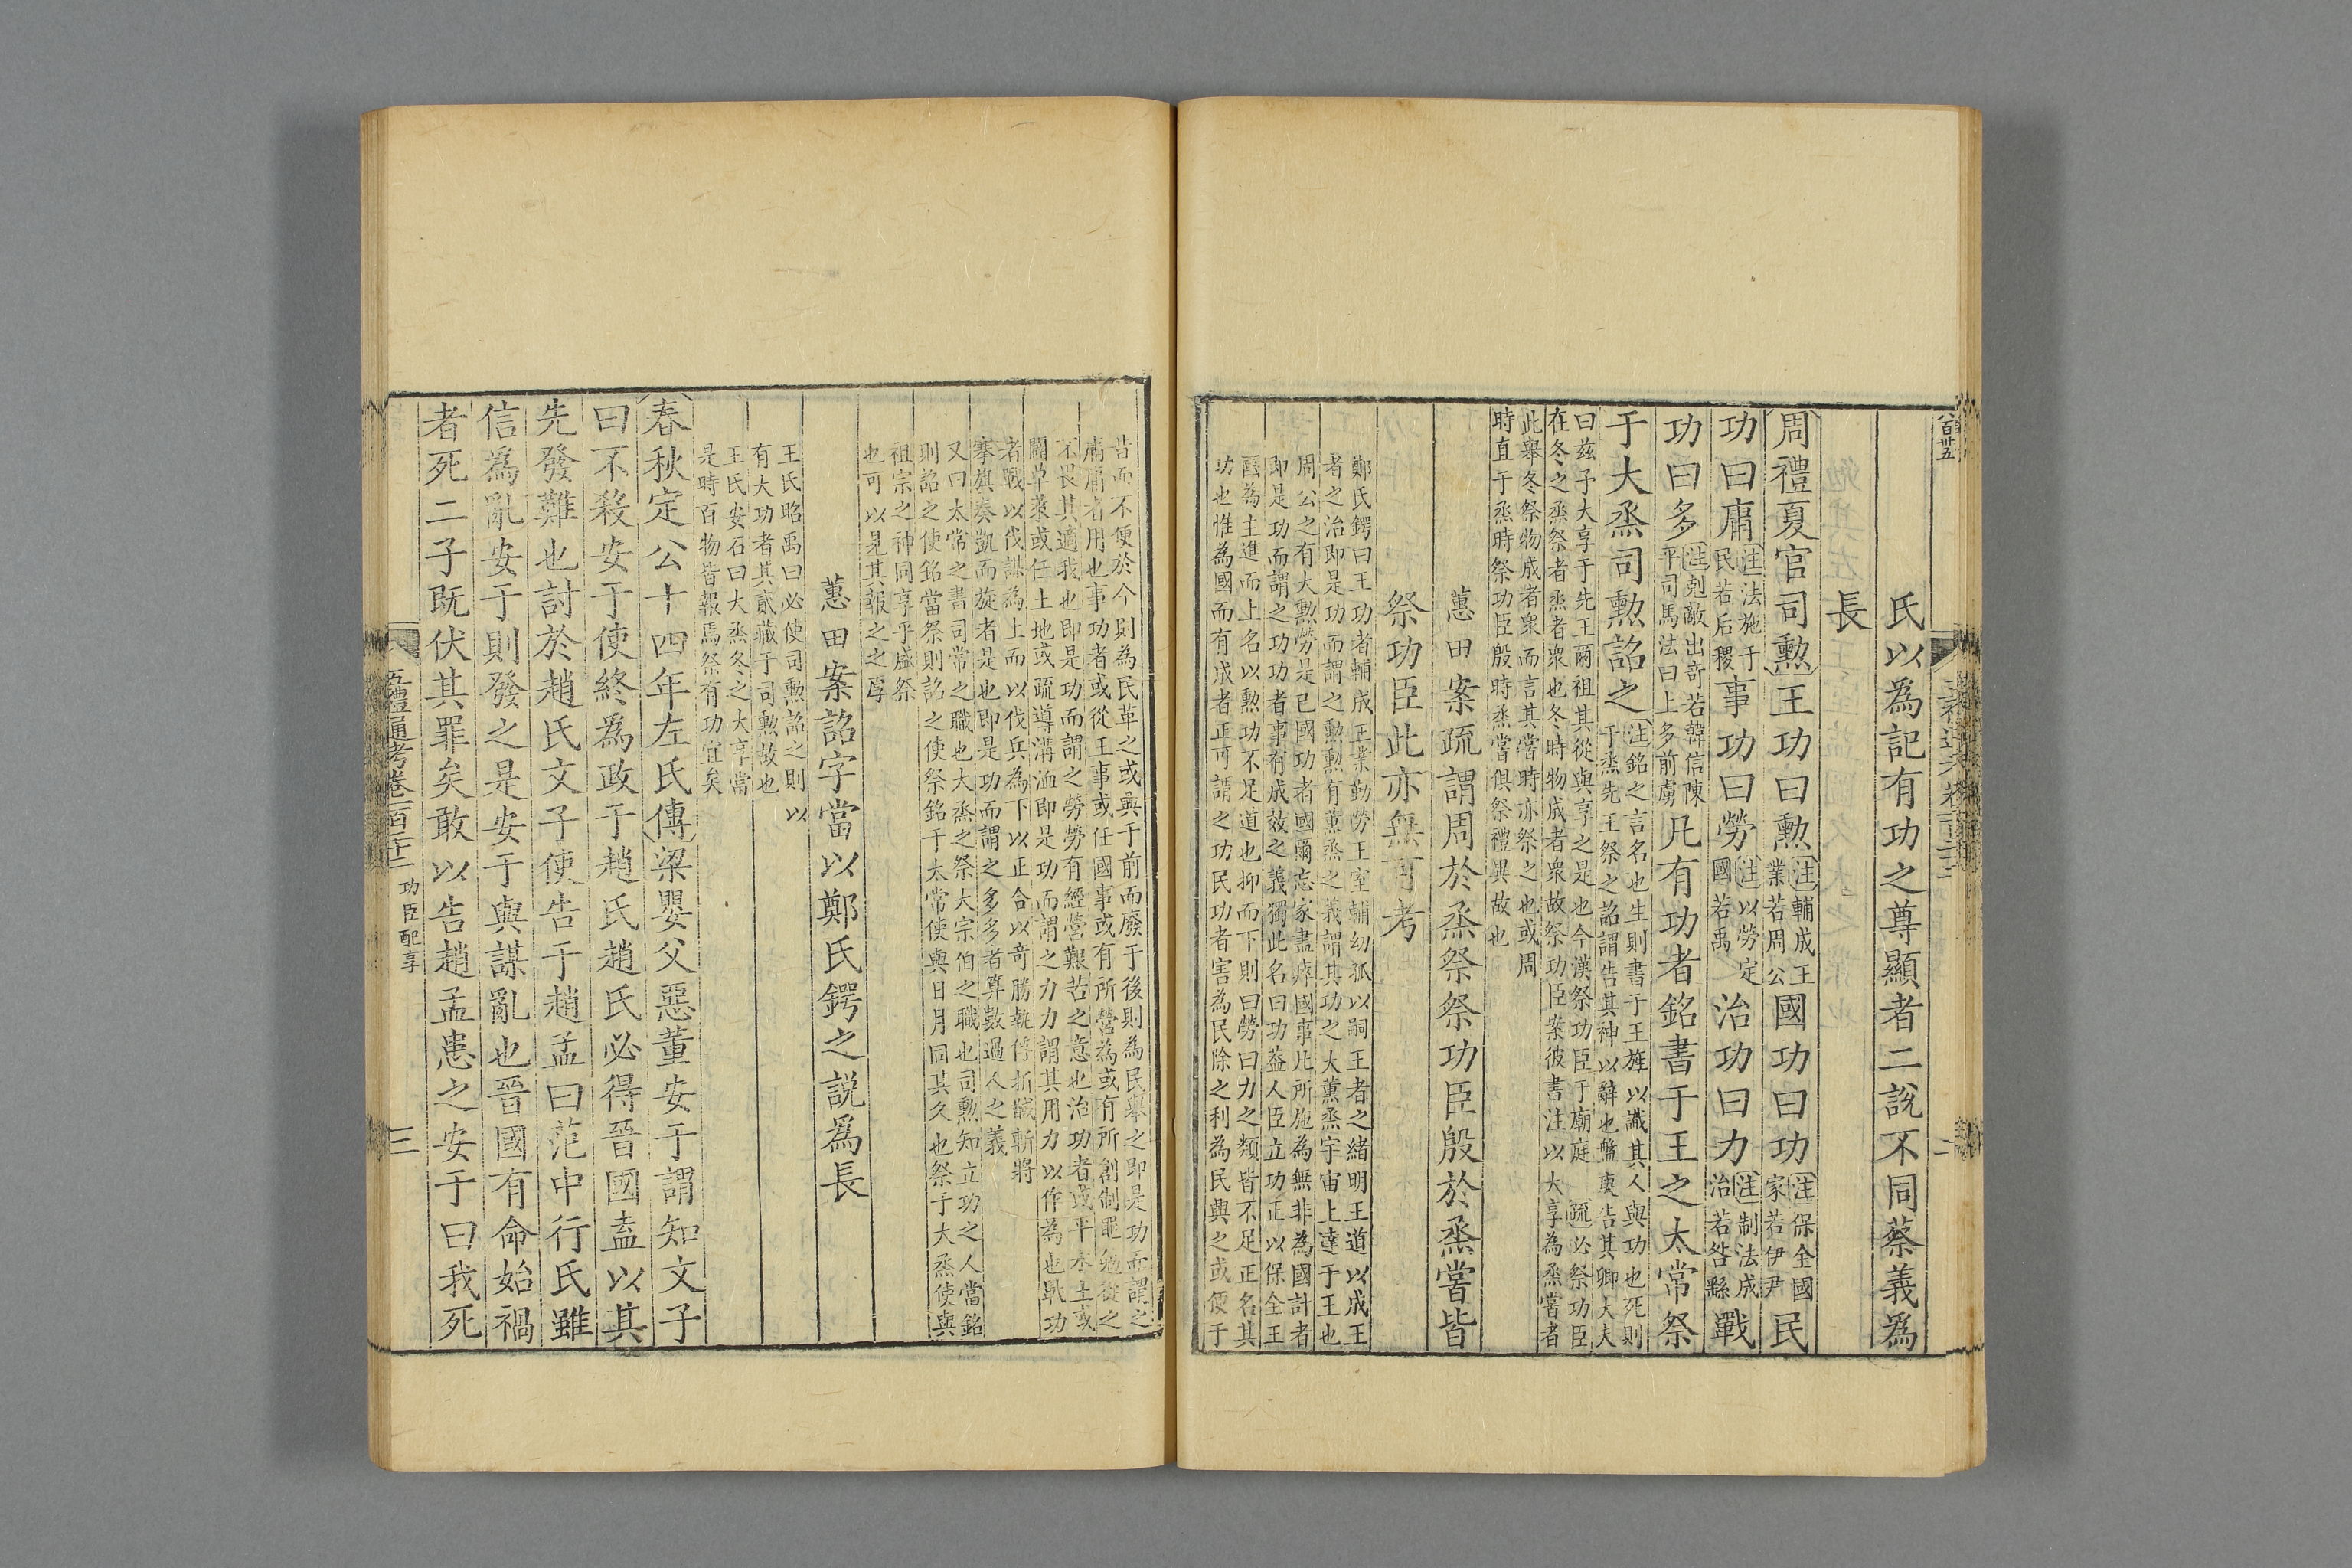 八百廿五
氏以爲記有功之尊顯者二說不同蔡義爲
長
周禮夏官司勲王功曰勲注輔成王業若周公國功曰功注保全國家若伊尹民
功曰庸注法施于民若后稷事功曰勞注以勞定國若禹治功曰力注制法成治若咎繇戰
功曰多注剋敵出奇若韓信陳平司馬法曰上多前虜凡有功者銘書于王之太常祭
于大烝司勲詔之注銘之言名也生則書于王旌以識其人與功也死則于烝先王祭之詔謂告其神以辭也盤庚告其卿大夫
曰茲予大享于先王爾祖其從與享之是也今漢祭功臣于廟庭 疏必祭功臣
在冬之烝祭者烝者衆也冬時物成者衆故祭功臣案彼書注以大享為烝嘗者
此舉冬祭物成者衆而言其嘗時亦祭之也或周
時直于烝時祭功臣殷時烝嘗俱祭禮異故也
蕙田案疏謂周於烝祭祭功臣殷於烝嘗皆
祭功臣此亦無可考
鄭氏鍔曰王功者輔成王業勤勞王室輔幼孤以嗣王者之緒明王道以成王
者之治即是功而謂之勲勲有薰烝之義謂其功之大薰烝宇宙上達于王也
周公之有大勲勞是已國功者國爾忘家盡瘁國事凡所施為無非為國計者
即是功而謂之功功者事有成效之義獨此名曰功葢人臣立功正以保全王
國為主進而上名以勲功不足道也抑而下則曰勞曰力之類皆不足正名其
功也惟為國而有成者正可謂之功民功者害為民除之利為民興之或便于
昔而不便於今則為民革之或興于前而廢于後則為民舉之即是功而謂之
庸庸者用也事功者或從王事或任國事或有所營為或有所創制黽勉從之
不畏其適我也即是功而謂之勞勞有經營艱苦之意也治功者或平水土或
闢草萊或任土地或疏導溝洫即是功而謂之力力謂其用力以作為也戰功
者戰以伐謀為上而以伐兵為下以正合以奇勝執俘折馘斬將
搴旗奏凱而旋者是也即是功而謂之多多者算數過人之義
又曰太常之書司常之職也大烝之祭大宗伯之職也司勲知立功之人當銘
則詔之使銘當祭則詔之使祭銘于太常使與日月同其久也祭于大烝使與
祖宗之神同享乎盛祭
也可以見其報之之厚
蕙田案詔字當以鄭氏鍔之說爲長
王氏昭禹曰必使司勲詔之則以
有大功者其貳藏于司勲故也
王氏安石曰大烝冬之大享當
是時百物皆報焉祭有功宜矣
春秋定公十四年左氏傳梁嬰父惡董安于謂知文子
曰不殺安于使終為政于趙氏趙氏必得晉國盍以其
先發難也討於趙氏文子使告于趙孟曰范中行氏雖
信為亂安于則發之是安于與謀亂也晉國有命始禍
者死二子既伏其罪矣敢以告趙孟患之安于曰我死
五禮通考卷一百二十二 功臣配享 三